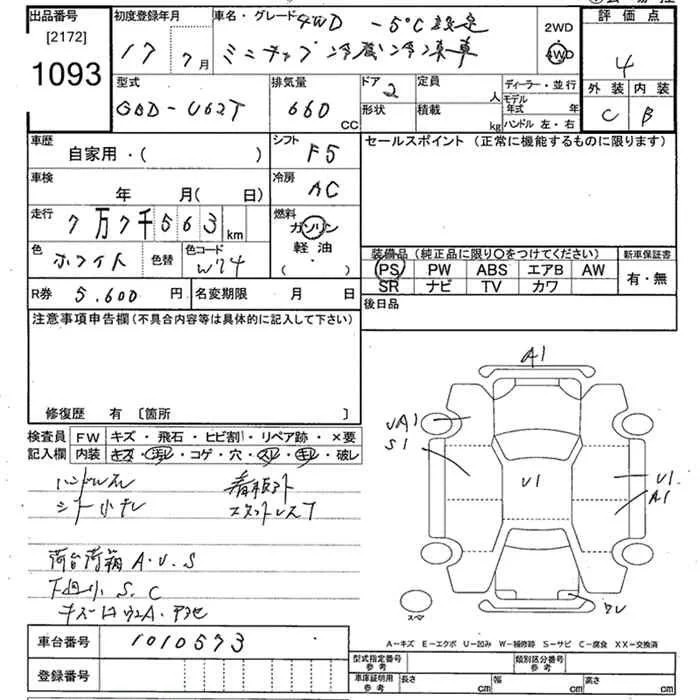 出品番号 初度登録年月 車名・グレード 4WD -5°C設定 2WD 評価点
[2172] 17 7月 ミニキャブ冷蔵冷凍車 4WD 4
1093 型式 排気量 ドア 2 定員 人 ディーラー・並行 外装 内装
GBD-U62T 660 CC 形状 積載 kg モデル年式 年 C B
ハンドル 左・右
車歴 自家用・( ) シフト F5 セールスポイント (正常に機能するものに限ります)
車検 年 月( 日) 冷房 AC
走行 7万7千563 km 燃料 ガソリン
軽油
( ・ )
色 ホワイト 色替 色コード W74 装備品 (純正品に限り○をつけてください) 新車保証書
PS PW ABS エアB AW 有・無
SR ナビ TV カワ
R券 5,600円 名変期限 月 日 後日品
注意事項申告欄(不具合内容等は具体的に記入して下さい)
修復歴 有 [箇所 ]
検査員 FW キズ・飛石・ヒビ割・リペア跡・×要
記入欄 内装 キズ・汚レ・コゲ・穴・スレ・キレ・破レ
ハンドルスレ
シート小キレ
荷台荷箱 A・U・S
下廻小 S、C
A1
UA1
S1
U1
U1
A1
スペア
A-キズ E-エクボ U-凹み W-補修跡 S-サビ C-腐食 XX-交換済
車台番号 1010573
登録番号
型式指定番号 参考 類別区分番号 参考
車庫証明用 参考 長さ cm 幅 cm 高さ cm